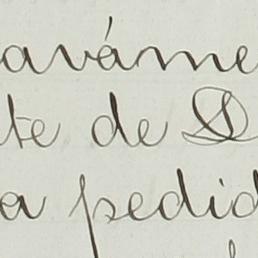 aváme
te de D
a pedid